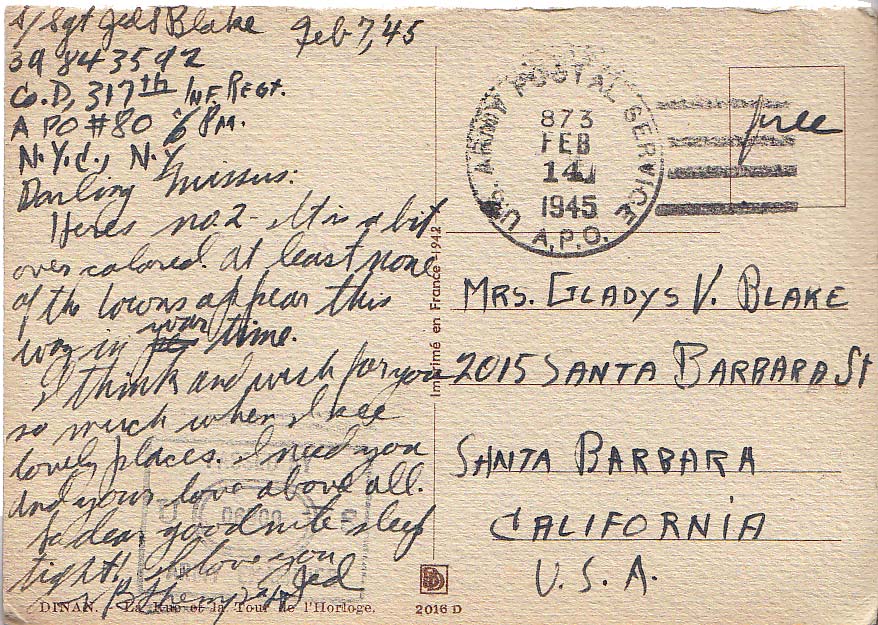 S/Sgt Jed S Blake Feb 7, '45
39 843592
Co. D, 317th INF. REGT.
A P O #80 % P.M.
N.Y.C., N.Y.
Darling Missus:
Heres no. 2 - It is a bit
over colored. At least none
of the towns appear this
way in war time.
I think and wish for you
so much when I see
lovely places. I need you
and your love above all.
So dear, goodnite sleep
tight! I love you
Jed
DINAN. - La Rue et la Tour de l'Horloge.
Imprimé en France - 1942
U.S. ARMY POSTAL SERVICE
A.P.O.
873
FEB
14
1945
free
MRS. GLADYS V. BLAKE
2015 SANTA BARBARA St
SANTA BARBARA
CALIFORNIA
U.S.A.
2016 D